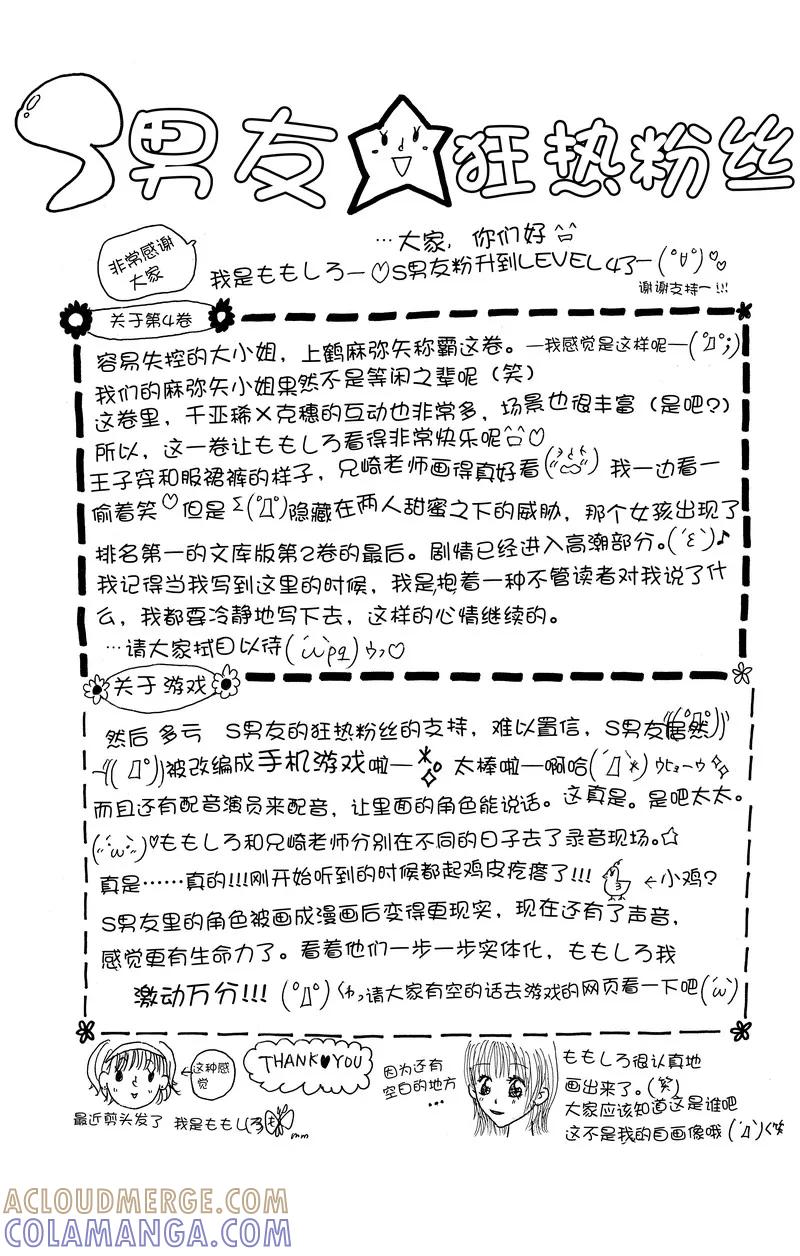 S男友☆狂热粉丝
非常感谢
大家
…大家，你们好
我是ももしろー♡S男友粉升到LEVEL43ー(°∀°)♡
谢谢支持ー!!!
关于第4卷
容易失控的大小姐，上鹤麻弥矢称霸这卷。—我感觉是这样呢—(°Д°;)
我们的麻弥矢小姐果然不是等闲之辈呢（笑）
这卷里，千亚稀×克穗的互动也非常多，场景也很丰富（是吧？）
所以，这一卷让ももしろ看得非常快乐呢♡
王子穿和服裙裤的样子，兄崎老师画得真好看 我一边看一
偷着笑♡但是Σ(°Д°)隐藏在两人甜蜜之下的威胁，那个女孩出现了
排名第一的文库版第2卷的最后。剧情已经进入高潮部分。(´ε`)♪
我记得当我写到这里的时候，我是抱着一种不管读者对我说了什
么，我都要冷静地写下去，这样的心情继续的。
…请大家拭目以待(´ω`pq)ウッ♡
关于游戏
然后 多亏 S男友的狂热粉丝的支持，难以置信，S男友居然((°Д°))
—((°Д°))被改编成手机游戏啦— 太棒啦—啊哈(´Д`*)ウヒョーウ
而且还有配音演员来配音，让里面的角色能说话。这真是。是吧太太。
(´ω`)♡ももしろ和兄崎老师分别在不同的日子去了录音现场。☆
真是……真的!!!刚开始听到的时候都起鸡皮疙瘩了!!! ←小鸡？
S男友里的角色被画成漫画后变得更现实，现在还有了声音，
感觉更有生命力了。看着他们一步一步实体化，ももしろ我
激动万分!!! (°Д°)くわっ请大家有空的话去游戏的网页看一下吧(´ω`)
←这种感觉
THANK♥YOU
最近剪头发了 我是ももしろ
因为还有
空白的地方
…
ももしろ很认真地
画出来了。（笑）
大家应该知道这是谁吧
这不是我的自画像哦(´Д`)
ACLOUDMERGE.COM
COLAMANGA.COM